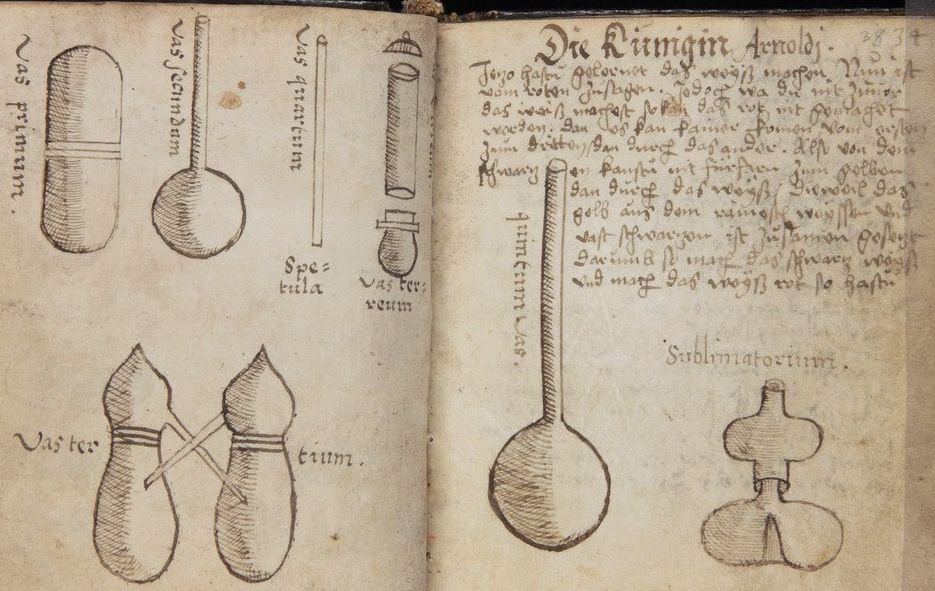 Vas primum.
Vas secundum
Vas quartum
Spe=
tula
Vas ter=
reum
Vas ter
tium.
Die Künigin Arnoldj.
Jetzo hastu gelernet das weyß machen. Nun ist
vom roten zusagen. Jedoch wa du nit zuuor
das weiß machest so kan das rot nit gemachet
werden. dan es kan kainer komen vom ersten
zum dritten / dan durch das ander. Also von dem
schwarzen kanstu nit fürfarn zum gelben
dan durch das weyß / Dieweil das
gelb aus dem weyssen und
vast schwarzen ist zusamen gesetzt
darumb so mach das schwarz weyß
und mach das weyß rot so hastu
quintum vas.
Sublimatorium.